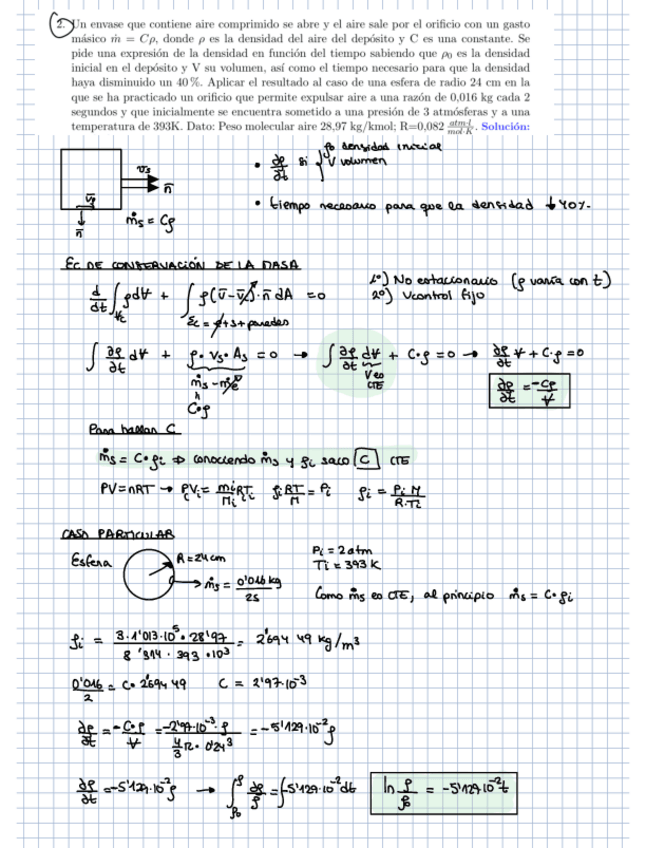 2. Un envase que contiene aire comprimido se abre y el aire sale por el orificio con un gasto
másico ṁ = Cρ, donde ρ es la densidad del aire del depósito y C es una constante. Se
pide una expresión de la densidad en función del tiempo sabiendo que ρ₀ es la densidad
inicial en el depósito y V su volumen, así como el tiempo necesario para que la densidad
haya disminuido un 40 %. Aplicar el resultado al caso de una esfera de radio 24 cm en la
que se ha practicado un orificio que permite expulsar aire a una razón de 0,016 kg cada 2
segundos y que inicialmente se encuentra sometido a una presión de 3 atmósferas y a una
temperatura de 393K. Dato: Peso molecular aire 28,97 kg/kmol; R=0,082 atm·l/mol·K. Solución:
• ∂ρ/∂t si { ρ₀ densidad inicial
V volumen
v̄s
n̄
n̄
ṁs = Cρ
• tiempo necesario para que la densidad ↓ 40%.
EC DE CONSERVACIÓN DE LA MASA
1º) No estacionario (ρ varía con t)
2º) Vcontrol fijo
d/dt ∫ ρdV + ∫ ρ(v̄-v̄s)·n̄ dA = 0
Vc
Σc = + s + paredes
∫ ∂ρ/∂t dV + ρ·Vs·As = 0 → ∫ ∂ρ/∂t dV + C·ρ = 0 → ∂ρ/∂t V + C·ρ = 0
ṁs - ṁe
V es
CTE
C·ρ
∂ρ/∂t = -Cρ/V
Para hallar C
ṁs = C·ρi ⇒ conociendo ṁs y ρi saco C CTE
PV = nRT → PiVi = mi/Mi RTi ρiRT/M = Pi ρi = Pi M/R·Ti
CASO PARTICULAR
Esfera
R = 24 cm
ṁs = 0'016 kg/2s
Pi = 2 atm
Ti = 393 K
Como ṁs es CTE, al principio ṁs = C·ρi
ρi = 3·1'013·10⁵·28'97/8'314·393·10³ = 2'694 49 kg/m³
0'016/2 = C· 2'694 49 C = 2'97·10⁻³
∂ρ/∂t = -C·ρ/V = -2'97·10⁻³·ρ/4/3 π·0'24³ = -5'129·10⁻²ρ
∂ρ/∂t = -5'129·10⁻²ρ → ∫ρ₀^ρ ∂ρ/ρ = ∫-5'129·10⁻²dt ln ρ/ρ₀ = -5'129·10⁻²t